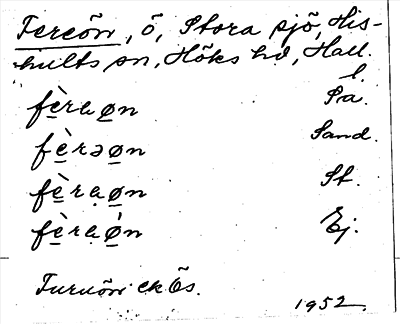 Fereön, ö, Stora sjö, His-
hults sn, Höks hd, Hall.
l.
fèraøn Pa.
fèrəøn Sand.
fèrạøn St.
fèrạøn Ej.
ek Ös.
1952.